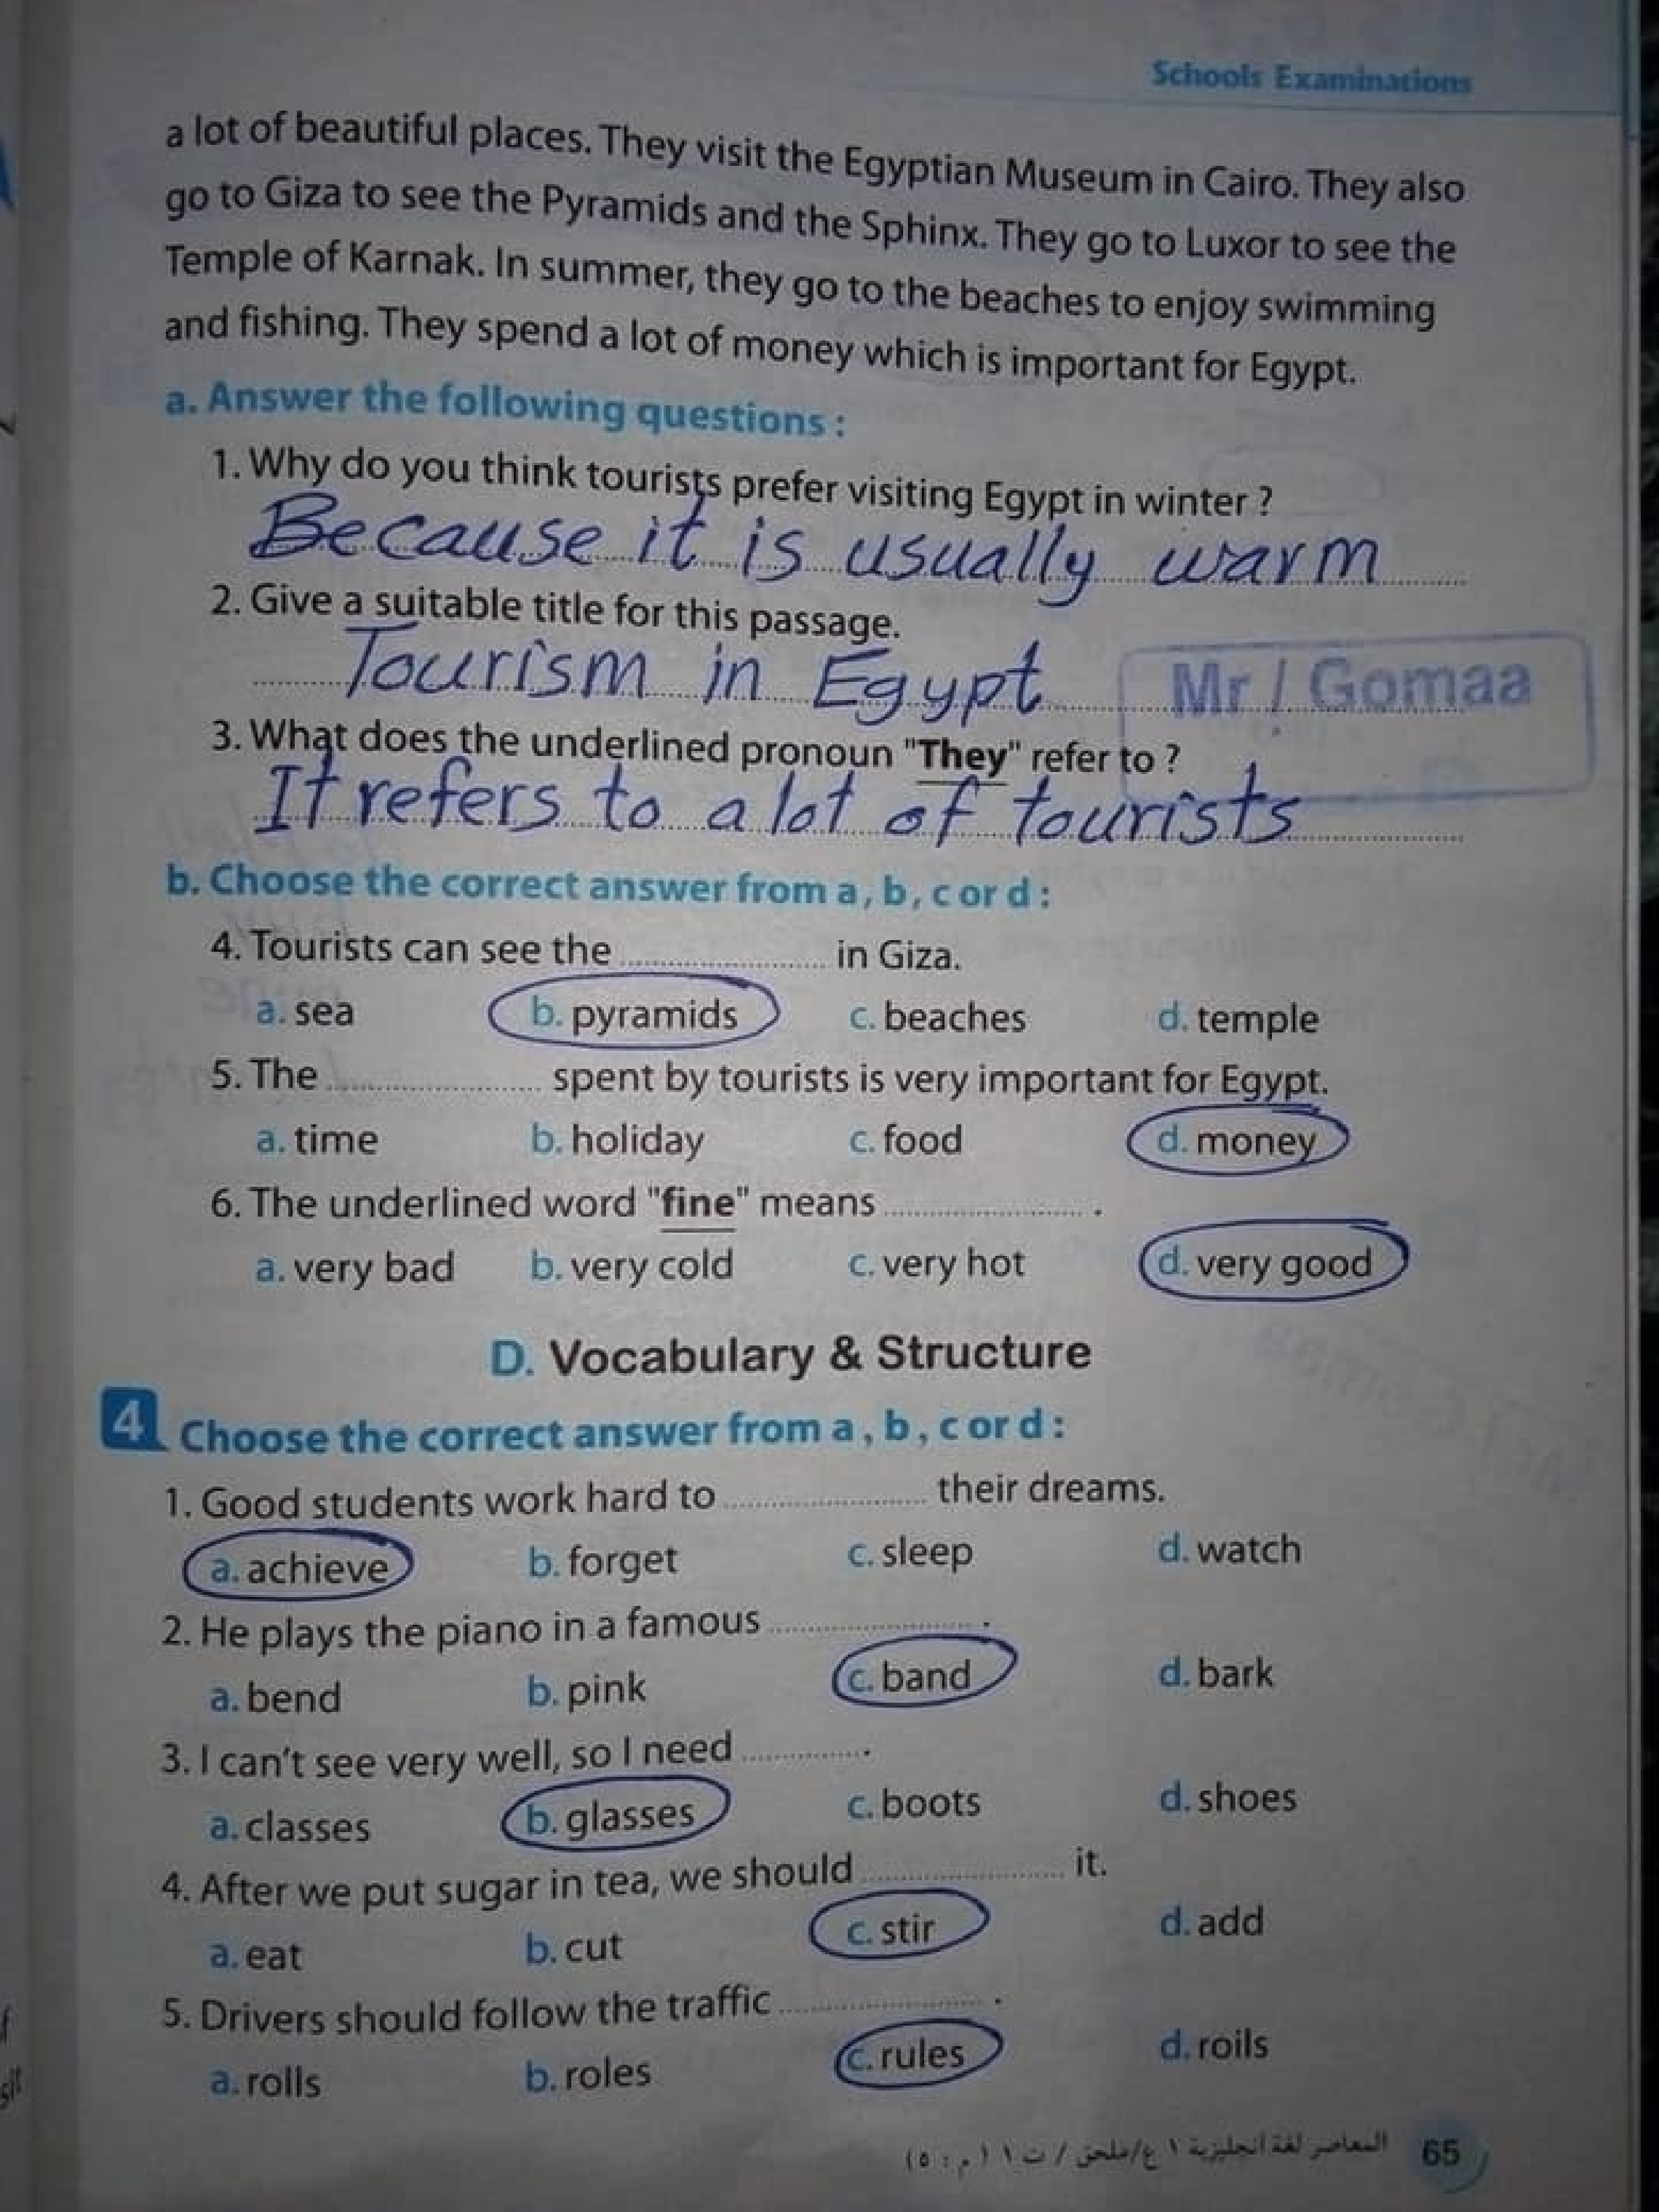 Schools Examinations
a lot of beautiful places. They visit the Egyptian Museum in Cairo. They also
go to Giza to see the Pyramids and the Sphinx. They go to Luxor to see the
Temple of Karnak. In summer, they go to the beaches to enjoy swimming
and fishing. They spend a lot of money which is important for Egypt.
a. Answer the following questions :
1. Why do you think tourists prefer visiting Egypt in winter ?
Because it is usually warm
2. Give a suitable title for this passage.
Tourism in Egypt
Mr / Gomaa
3. What does the underlined pronoun "They" refer to ?
It refers to a lot of tourists
b. Choose the correct answer from a , b , c or d :
4. Tourists can see the .................... in Giza.
a. sea b. pyramids c. beaches d. temple
5. The .................... spent by tourists is very important for Egypt.
a. time b. holiday c. food d. money
6. The underlined word "fine" means .................... .
a. very bad b. very cold c. very hot d. very good
D. Vocabulary & Structure
4 Choose the correct answer from a , b , c or d :
1. Good students work hard to .................... their dreams.
a. achieve b. forget c. sleep d. watch
2. He plays the piano in a famous .................... .
a. bend b. pink c. band d. bark
3. I can't see very well, so I need ............. .
a. classes b. glasses c. boots d. shoes
4. After we put sugar in tea, we should .................... it.
a. eat b. cut c. stir d. add
5. Drivers should follow the traffic .................... .
a. rolls b. roles c. rules d. roils
المعاصر لغة انجليزية ١ ع/ملحق / ت ١ (م : ٥) 65